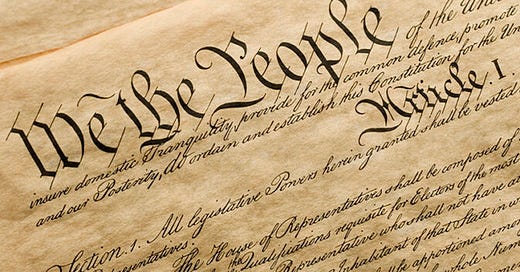 We the People of the United
insure domestic Tranquility, provide for the common defence, promote
and our Posterity, do ordain and establish this Constitution for the Uni
Article I.
Section. 1. All legislative Powers herein granted shall be vested
Representatives.
The House of Representatives shall be composed of
Qualifications requisite for Electors of the most
Representative who shall not have at
Inhabitant of that State in w
be apportioned among
whole Num